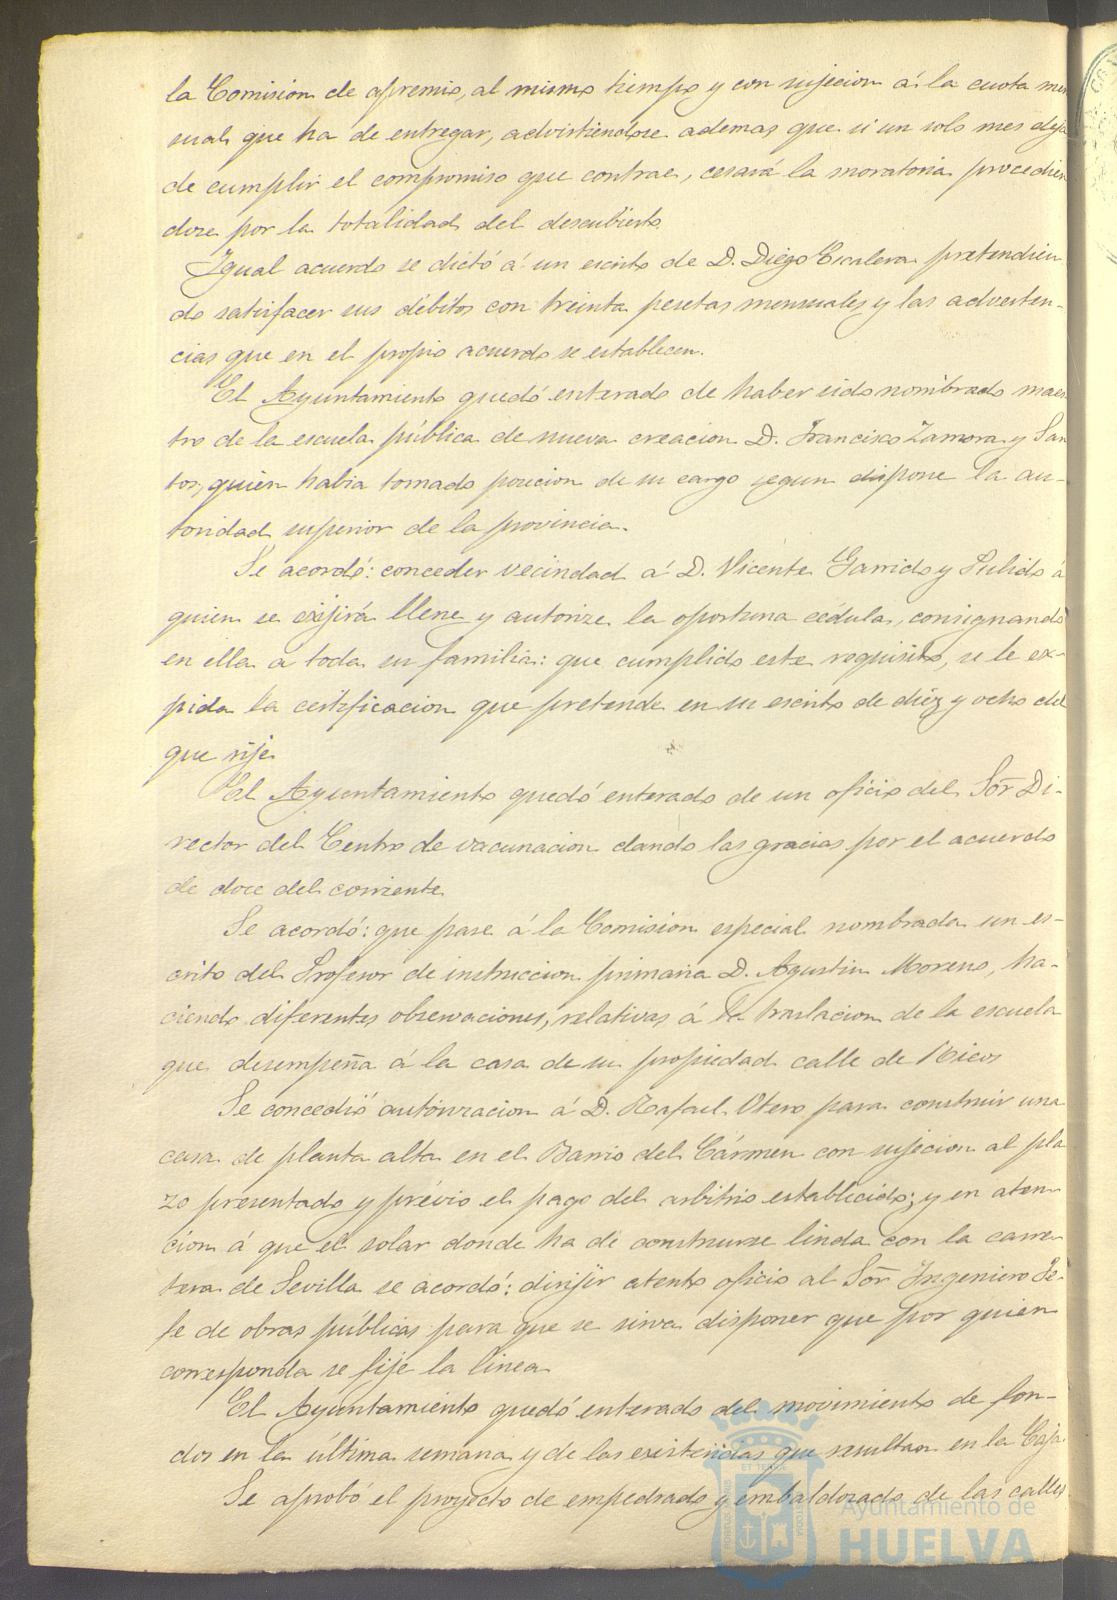 la Comision de apremio, al mismo tiempo y con sujecion á la cuota men
sual que ha de entregar, advirtiendose ademas que si un solo mes deja
de cumplir el compromiso que contrae, cesará la moratoria procedien
dose por la totalidad del descubierto
Igual acuerdo se dictó á un escrito de D. Diego Escalera pretendien
do satisfacer sus débitos con treinta pesetas mensuales y las adverten-
cias que en el propio acuerdo se establecen.
El Ayuntamiento quedó enterado de haber sido nombrado maes
tro de la escuela pública de nueva creacion D. Francisco Zamora y San
tos, quien habia tomado posicion de su cargo segun dispone la au-
toridad superior de la provincia.
Se acordó: conceder vecindad á D. Vicente Garrido y Pulido á
quien se exijirá llene y autorize la oportuna cédula, consignando
en ella a toda su familia: que cumplido este requisito, se le ex-
pida la certificacion que pretende en su escrito de diez y ocho del
que rije
El Ayuntamiento quedó enterado de un oficio del Sõr Di-
rector del Centro de vacunacion dando las gracias por el acuerdo
de doce del corriente
Se acordó: que pase á la Comision especial nombrada un es-
crito del Profesor de instruccion primaria D. Agustin Moreno, ha-
ciendo diferentes observaciones, relativas á la traslacion de la escuela
que desempeña á la casa de su propiedad calle de Ricos
Se concedió autorizacion á D. Rafael Otero para construir una
casa de planta alta en el Barrio del Cármen con sujecion al pla
zo presentado y prévio el pago del arbitrio establecido; y en aten
cion á que el solar donde ha de construirse linda con la carre
tera de Sevilla se acordó: dirijir atento oficio al Sõr Ingeniero Je-
fe de obras públicas para que se sirva disponer que por quien
corresponda se fije la linea
El Ayuntamiento quedó enterado del movimiento de fon-
dos en la última semana y de las existencias que resultan en la Caja
Se aprobó el proyecto de empedrado y embaldosado de las calles
Ayuntamiento de
HUELVA